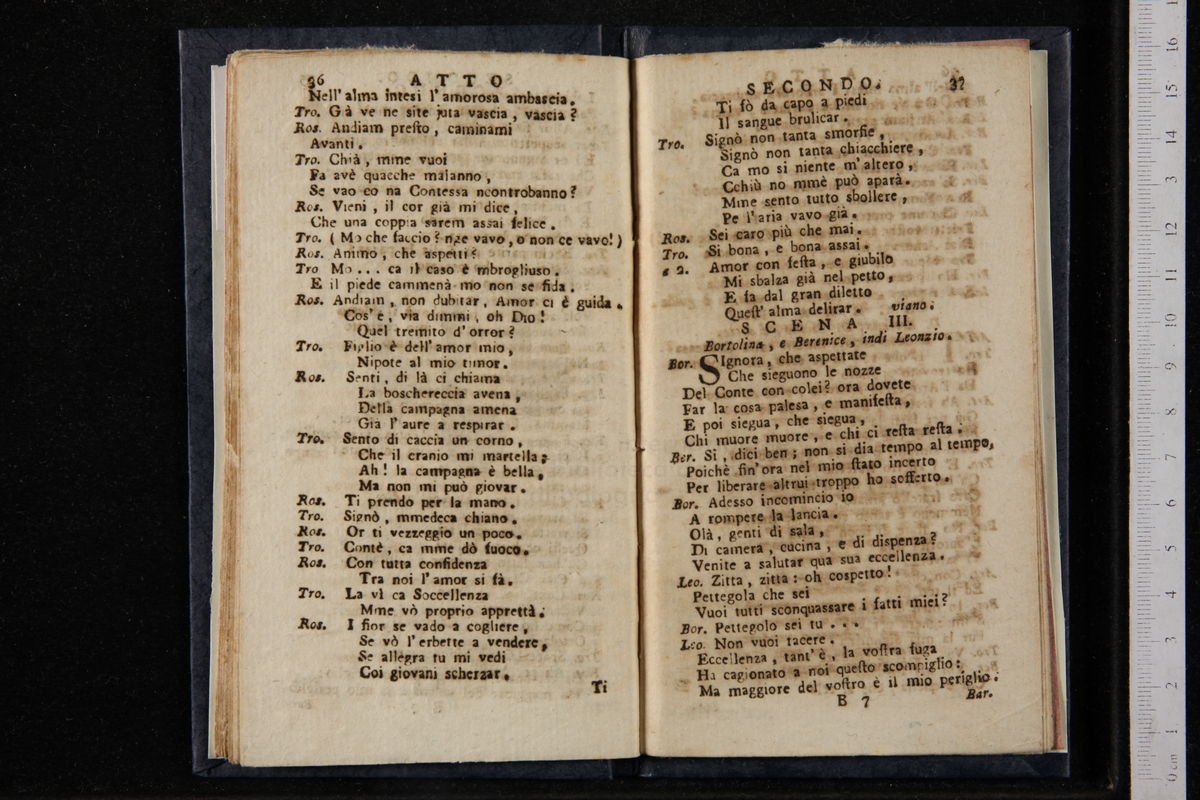 36 ATTO
Nell' alma intesi l' amorosa ambascia.
Tro. Gà ve ne site juta vascia, vascia?
Ros. Andiam preſto, caminami
Avanti.
Tro. Chià, mme vuoi
Fa avè quacche malanno,
Se vao co na Contessa ncontrobanno?
Ros. Vieni, il cor già mi dice,
Che una coppia sarem assai felice.
Tro. (Mo che faccio? nge vavo, o non ce vavo!)
Ros. Animo, che aspetti?
Tro Mo... ca il caso è mbrogliuso.
E il piede cammenà mo non se fida.
Ros. Andiam, non dubitar, Amor ci è guida.
Cos' è, via dimmi, oh Dio!
Quel tremito d' orror?
Tro. Figlio è dell' amor mio,
Nipote al mio timor.
Ros. Senti, di là ci chiama
La boschereccia avena,
Della campagna amena
Gia l' aure a respirar.
Tro. Sento di caccia un corno,
Che il cranio mi martella;
Ah! la campagna è bella,
Ma non mi può giovar.
Ros. Ti prendo per la mano.
Tro. Signò, mmedeca chiano.
Ros. Or ti vezzeggio un poco.
Tro. Contè, ca mme dò fuoco.
Ros. Con tutta confidenza
Tra noi l' amor si fà.
Tro. La vì ca Soccellenza
Mme vò proprio apprettà.
Ros. I fior se vado a cogliere,
Se vò l' erbette a vendere,
Se allegra tu mi vedi
Coi giovani scherzar.
Ti
SECONDO. 37
Ti fò da capo a piedi
Il sangue brulicar.
Tro. Signò non tanta smorfie,
Signò non tanta chiacchiere,
Ca mo si niente m' altero,
Cchiù no mmè può aparà.
Mme sento tutto sbollere,
Pe l' aria vavo già.
Ros. Sei caro più che mai.
Tro. Si bona, e bona assai.
a 2. Amor con feſta, e giubilo
Mi sbalza già nel petto,
E fa dal gran diletto
Queſt' alma delirar. viano.
SCENA III.
Bortolina, e Berenice, indi Leonzio.
Bor. SIgnora, che aspettate
Che sieguono le nozze
Del Conte con colei? ora dovete
Far la cosa palesa, e manifeſta,
E poi siegua, che siegua,
Chi muore muore, e chi ci reſta reſta.
Ber. Si, dici ben; non si dia tempo al tempo,
Poichè fin' ora nel mio ſtato incerto
Per liberare altrui troppo ho sofferto.
Bor. Adesso incomincio io
A rompere la lancia.
Olà, genti di sala,
Di camera, cucina, e di dispenza?
Venite a salutar qua sua eccellenza.
Leo. Zitta, zitta: oh cospetto!
Pettegola che sei . . .
Vuoi tutti sconquassare i fatti miei?
Bor. Pettegolo sei tu . . .
Leo. Non vuoi tacere.
Eccellenza, tant' è, la voſtra fuga
Ha cagionato a noi queſto scompiglio:
Ma maggiore del voſtro è il mio periglio.
B 7 Bar.